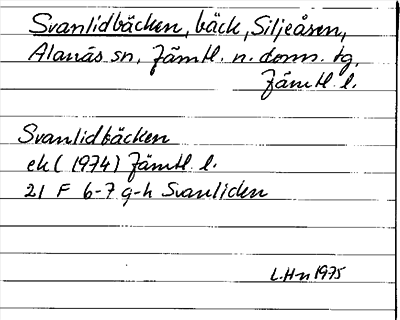 Svanlidbäcken, bäck, Siljeåsen,
Alanäs sn, Jämtl. n. doms. tg,
Jämtl. l.
Svanlidbäcken
ek (1974) Jämtl l.
21 F 6-7 g-h Svanliden
L.Hn 1975